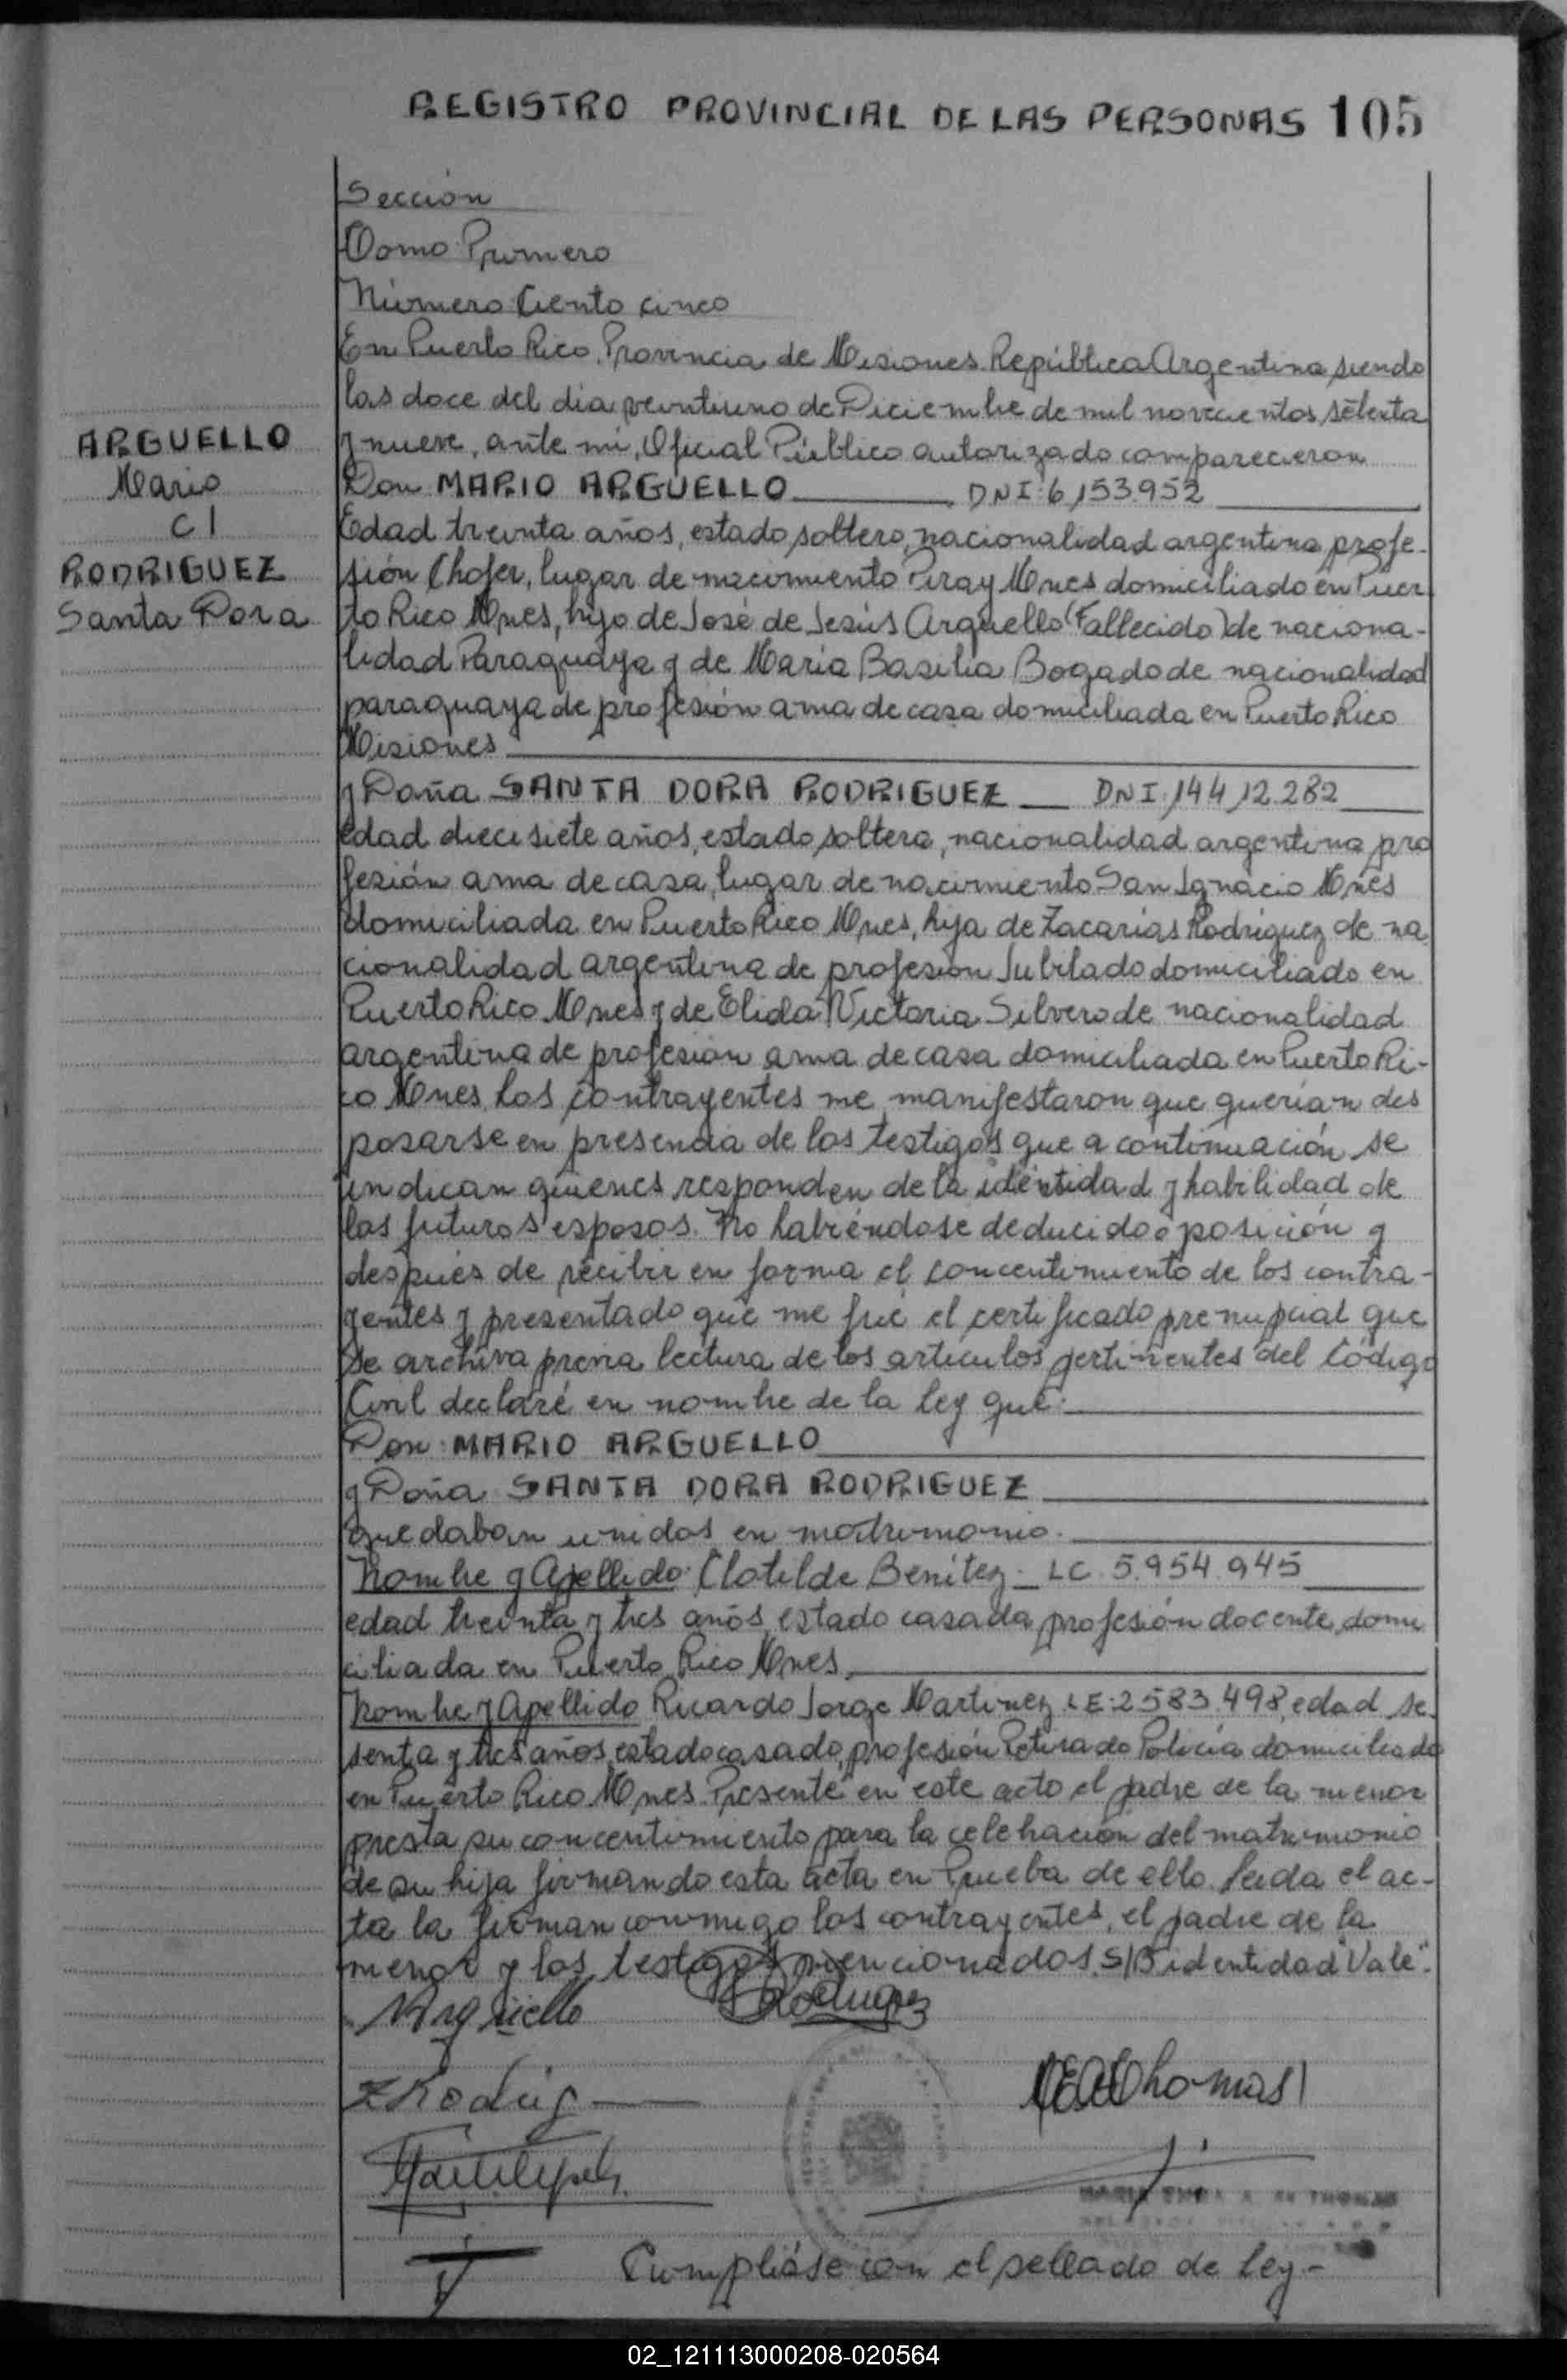 REGISTRO PROVINCIAL DE LAS PERSONAS 105
Sección
Tomo Primero
Número Ciento cinco
En Puerto Rico, Provincia de Misiones República Argentina siendo
las doce del día veintiuno de Diciembre de mil novecientos setenta
y nueve, ante mí, Oficial Público autorizado comparecieron
Don MARIO ARGUELLO DNI: 6,153.952
Edad treinta años, estado soltero, nacionalidad argentina profe-
sión Chofer, lugar de nacimiento Piray Mnes domiciliado en Puer
to Rico Mnes, hijo de José de Jesús Arguello (Fallecido) de naciona-
lidad Paraguaya y de María Basilia Bogado de nacionalidad
paraguaya de profesión ama de casa domiciliada en Puerto Rico
Misiones
y Doña SANTA DORA RODRIGUEZ DNI: 144,12.282
edad diecisiete años, estado soltera, nacionalidad argentina pro
fesión ama de casa, lugar de nacimiento San Ignacio Mnes
domiciliada en Puerto Rico Mnes, hija de Zacarías Rodríguez de na
cionalidad argentina de profesión Jubilado domiciliado en
Puerto Rico Mnes y de Elida Victoria Silvero de nacionalidad
argentina de profesión ama de casa domiciliada en Puerto Ri-
co Mnes. Los contrayentes me manifestaron que querían des
posarse en presencia de los testigos que a continuación se
indican quienes responden de la identidad y habilidad de
los futuros esposos. No habiéndose deducido oposición y
después de recibir en forma el concentimiento de los contra-
yentes y presentado que me fue el certificado prenupcial que
se archiva previa lectura de los artículos pertinentes del Código
Civil declaré en nombre de la ley que:
Don: MARIO ARGUELLO
y Doña SANTA DORA RODRIGUEZ
quedaban unidos en matrimonio.
Nombre y Apellido: Clotilde Benítez LC. 5.954.945
edad treinta y tres años, estado casada, profesión docente, domi
ciliada en Puerto Rico Mnes.
Nombre y Apellido Ricardo Jorge Martinez LE: 2583.498, edad se-
senta y tres años, estado casado, profesión Retirado Policía domiciliado
en Puerto Rico Mnes. Presente en este acto el padre de la menor
presta su concentimiento para la celebración del matrimonio
de su hija firmando esta acta en Prueba de ello. Leída el ac-
ta la firman conmigo los contrayentes, el padre de la
menor y los testigos mencionados. S/B identidad "Vale".
ARGUELLO
Mario
C1
RODRIGUEZ
Santa Dora
MArguello
Rodriguez
ZRodrig
Thomas
Cumpliose con el sellado de Ley.-
02_121113000208-020564